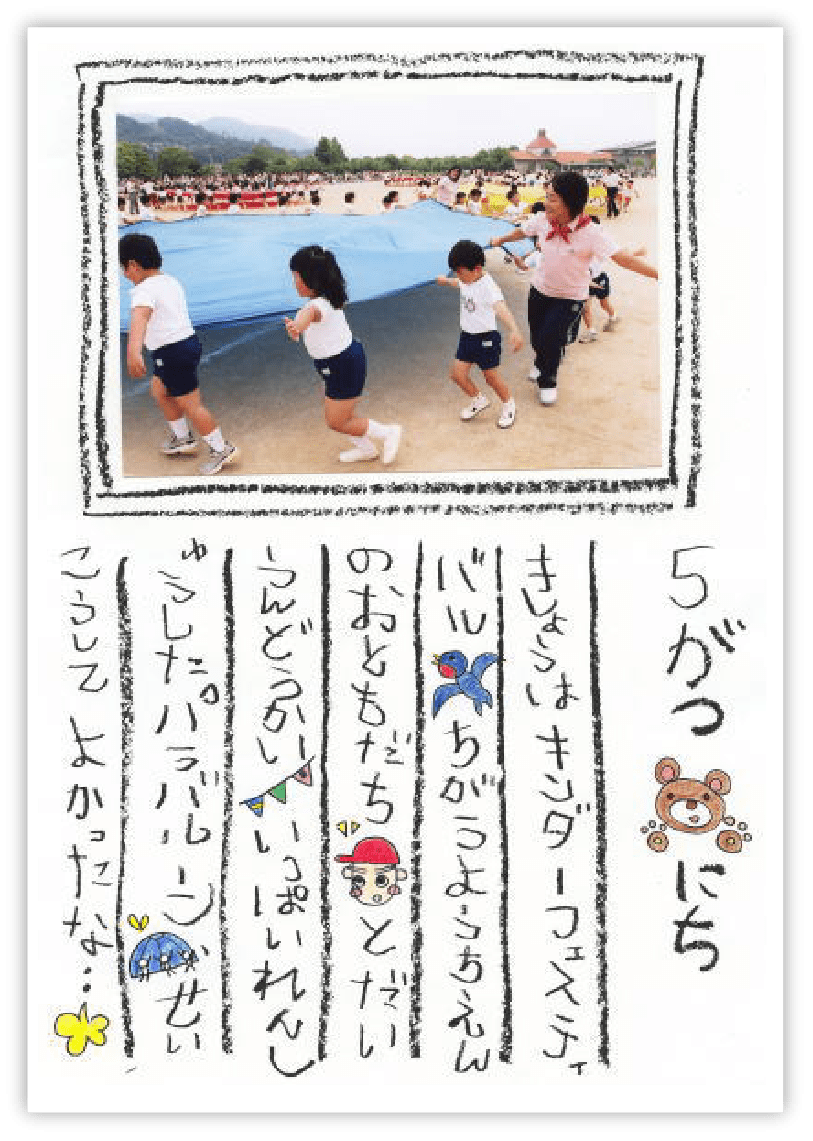 5がつにち
きょうはキンダーフェスティ
バルちがうようちえん
のおともだちとだい
うんどうかいいっぱいれんし
ゅうした。パラバルーン、せい
こうしてよかったな…